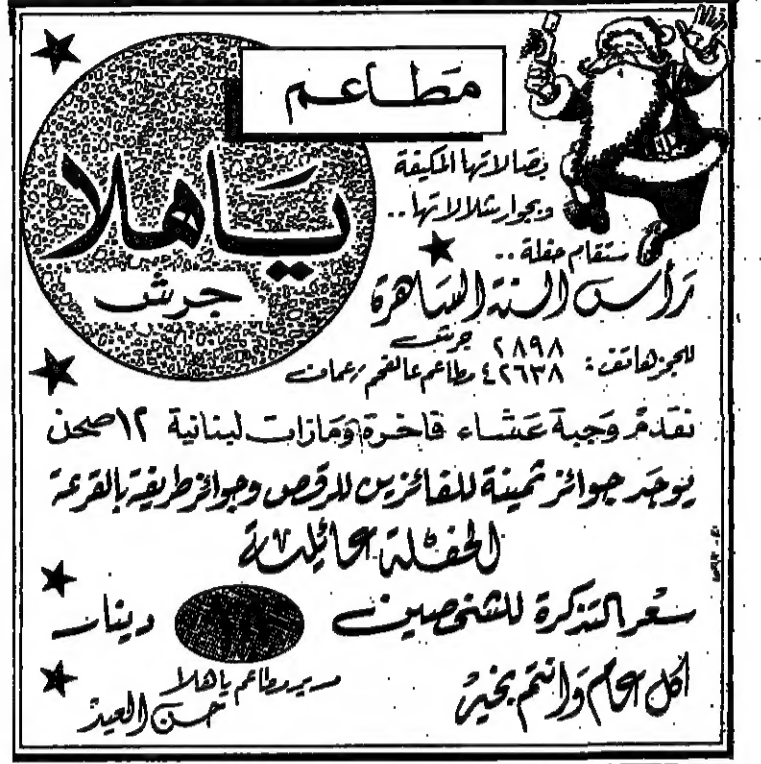 مطاعم
ياهلا
جرش
بصالاتها المكيفة
وبجوار شلالاتها..
ستقام حفلة..
رأس السنة الساهرة
للحجز هاتف: ٢٨٩٨ جرش
٤٢٦٣٨ مطاعم عالفحم / عمان
نقدم وجبة عشاء فاخرة ومازات لبنانية ١٢ صحن
يوجد جوائز ثمينة للفائزين للرقص وجوائز طريفة بالقرعة
الحفلة عائلية
سعر التذكرة للشخصين دينار
كل عام وانتم بخير
مدير مطاعم ياهلا
حسن العيد